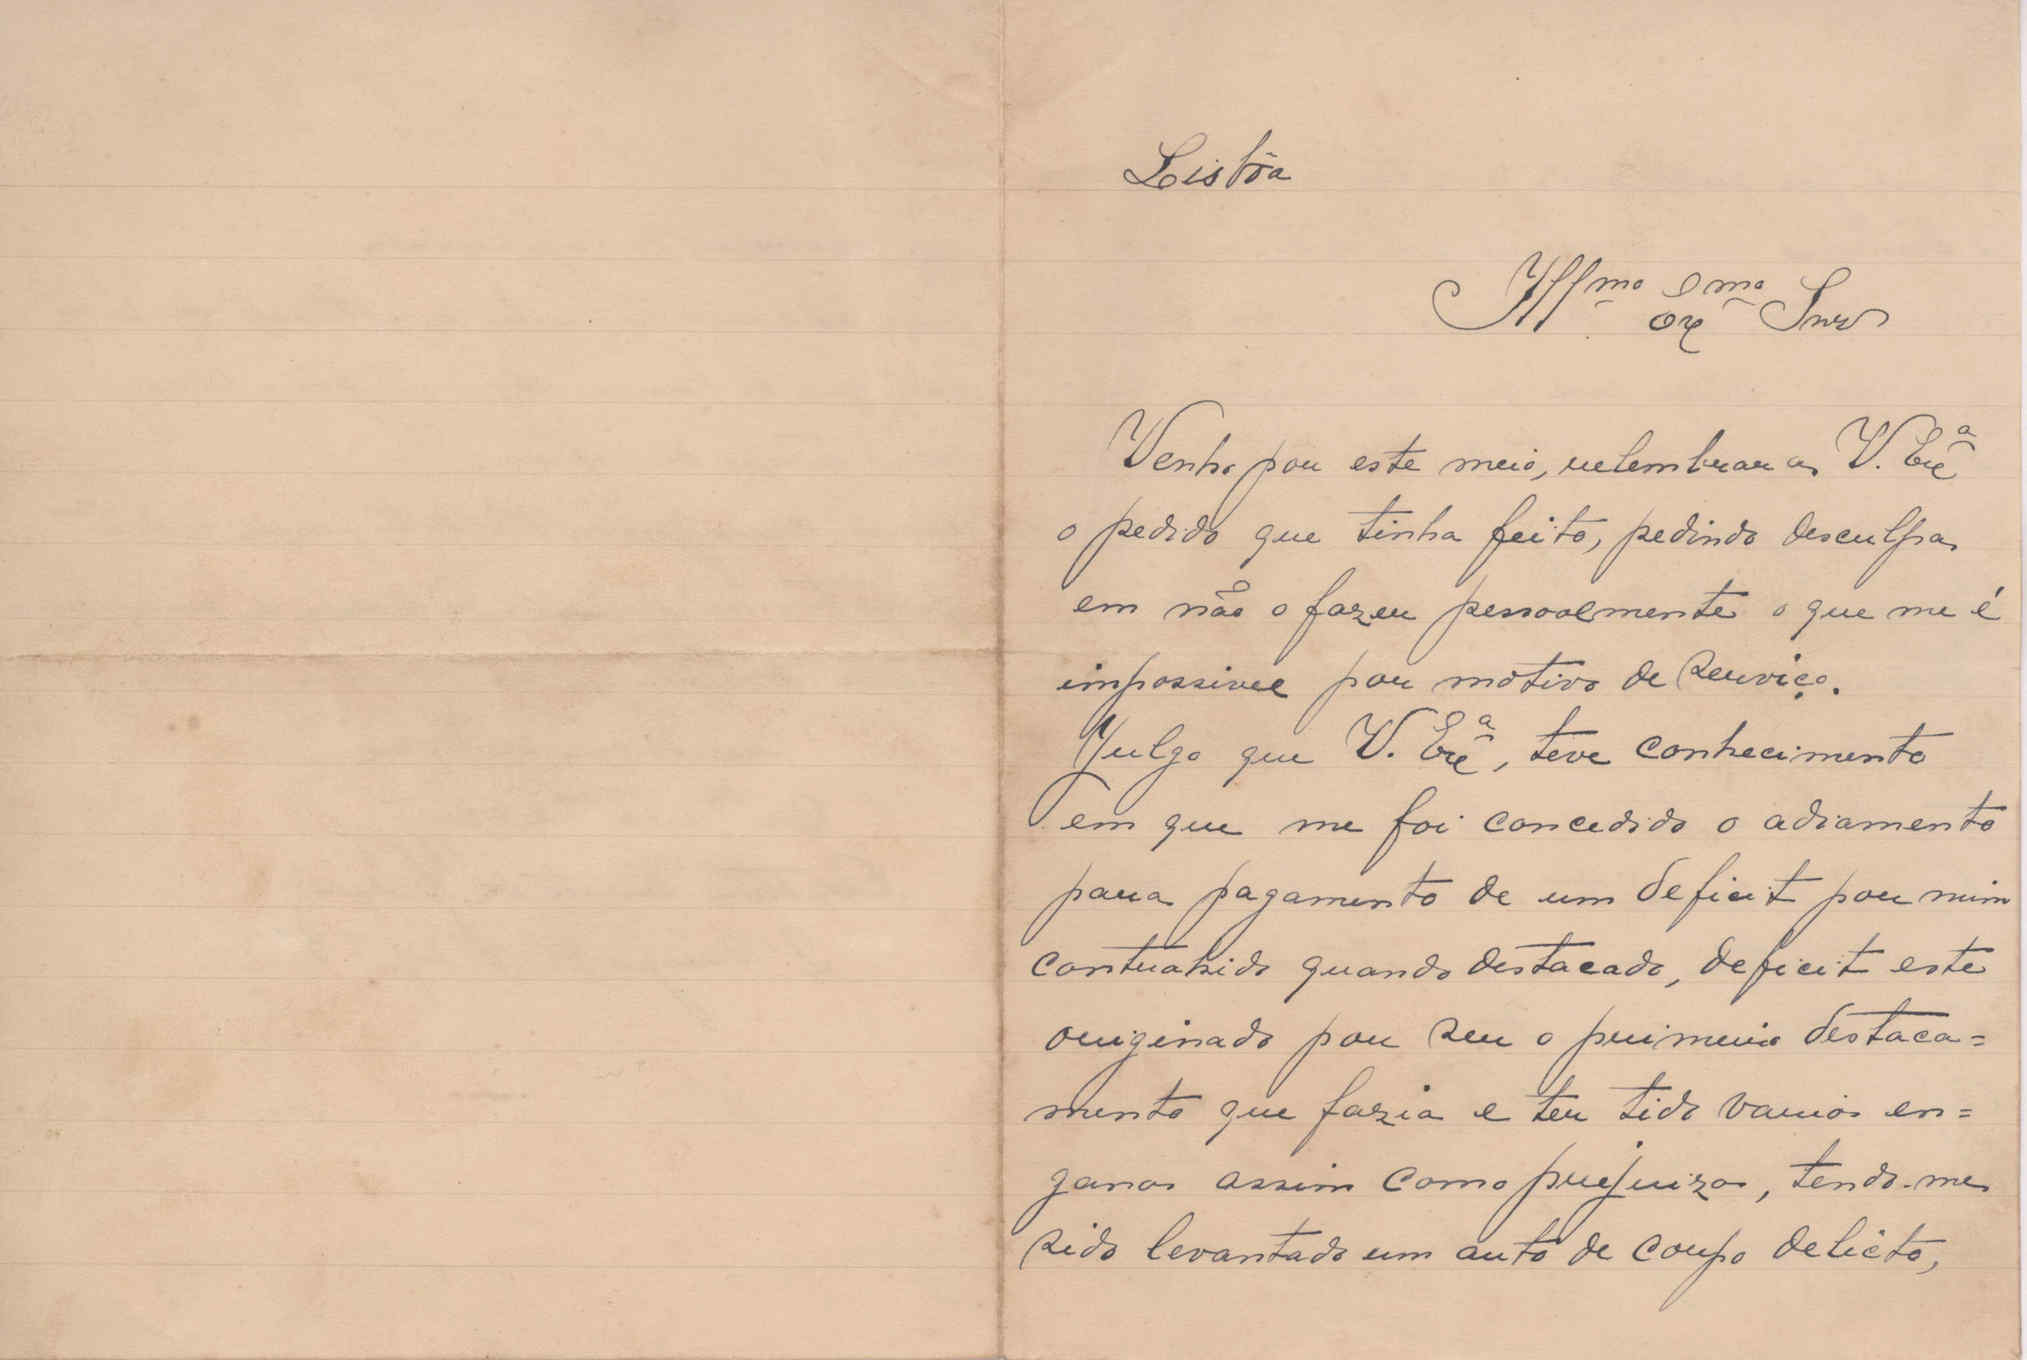 Lisbôa
Illmo Exmo Snr
Venho por este meio, relembrar a V. Exª
o pedido que tinha feito, pedindo desculpa
em não o fazer pessoalmente o que me é
impossivel por motivo de serviço.
Julgo que V. Exª, teve conhecimento
em que me foi concedido o adiamento
para pagamento de um deficit por mim
contrahido quando destacado, deficit este
originado por ser o primeiro destaca=
mento que fazia e ter tido varios en=
ganos assim como prejuizos, tendo-me
sido levantado um auto de corpo delicto,